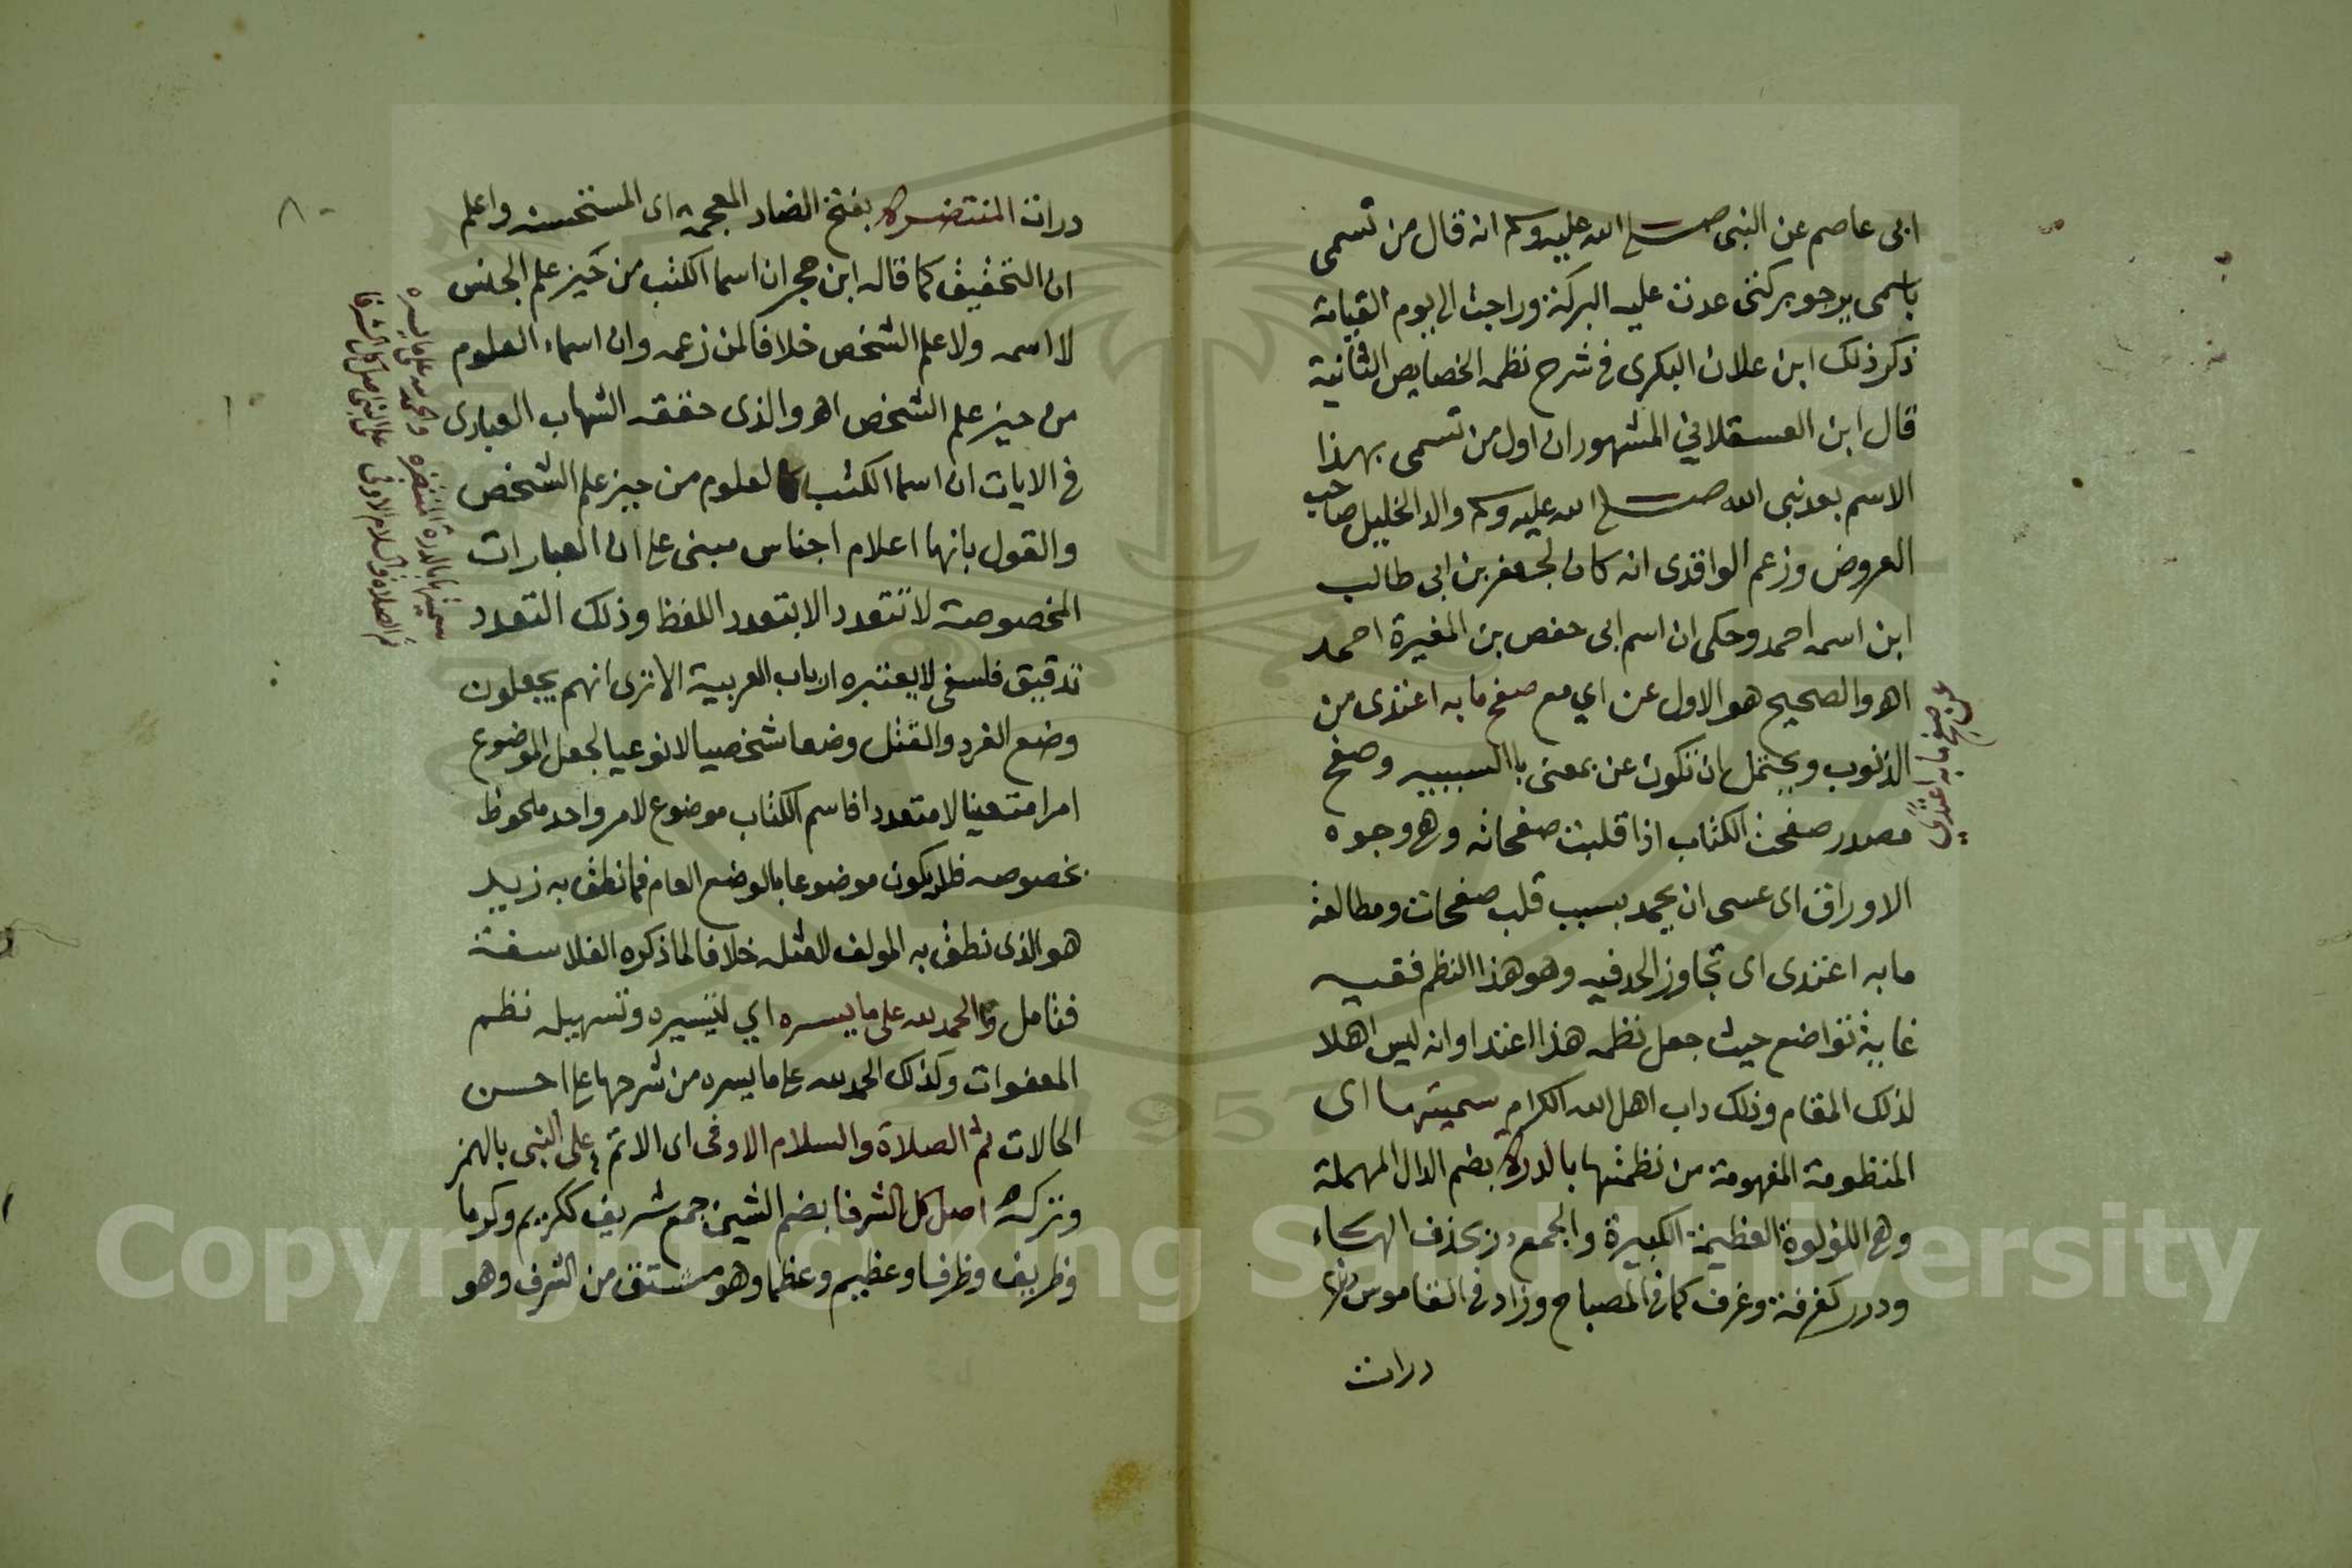 ابى عاصم عن النبى صلى الله عليه وسلم انه قال من تسمى
باسمى يرجو بركتى عدت عليه البركة وراحت الى يوم القيامة
ذكر ذلك ابن علان البكرى فى شرح نظمه الخصايص الثانية
قال ابن العسقلاني المشهور ان اول من تسمى بهذا
الاسم بعد نبى الله صلى الله عليه وسلم والد الخليل صاحب
العروض وزعم الواقدى انه كان لجعفر بن ابى طالب
ابن اسمه احمد وحكى ان اسم ابى حفص بن المغيرة احمد
اهـ والصحيح هو الاول عن اي مع صفح ما به اعتدى من
الذنوب ويحتمل ان تكون عن بمعنى باالسببيه وصفح
مصدر صفحت الكتاب اذا قلبت صفحاته وهى وجوه
الاوراق اى عسى ان يحمد بسبب قلب صفحات ومطالعة
ما به اعتدى اى تجاوز الحد فيه وهو هذا النظم ففيه
غاية تواضع حيث جعل نظمه هذا اعتدا وانه ليس اهلا
لذلك المقام وذلك داب اهل الله الكرام سميتها اى
المنظومة المفهومة من نظمتها بالدرة بضم الدال المهملة
وهى اللؤلوة العظيمة الكبيرة والجمع در بحذف الهاء
ودرر كغرفة وغرف كما فى المصباح وزاد فى القاموس
درات
عن صفح ما به اعتدي
درات المنتضره بفتح الضاد المعجمة اى المستحسنه واعلم
ان التحقيق كما قاله ابن حجر ان اسما الكتب من حيز علم الجنس
لا اسمه ولا علم الشخص خلافا لمن زعمه وان اسماء العلوم
من حيز علم الشخص اهـ والذى حققه الشهاب العبادى
فى الايات ان اسما الكتب كالعلوم من حيز علم الشخص
والقول بانها اعلام اجناس مبنى على ان العبارات
المخصوصة لا تتعدد الا بتعدد اللفظ وذلك التعدد
تدقيق فلسفى لا يعتبره ارباب العربية الا ترى انهم يجعلون
وضع الفرد والقتل وضعا شخصيا لا نوعيا لجعل الموضوع
امرا متعينا لا متعددا فاسم الكتاب موضوع لامر واحد ملحوظ
بخصوصه فلا يكون موضوعا بالوضع العام فما نطق به زيد
هو الذى نطق به المولف لا مثله خلافا لما ذكره الفلاسفة
فتامل والحمد لله على ما يسره اي لتيسيره وتسهيله نظم
المعفوات وكذلك الحمد لله على ما يسره من شرحها على احسن
الحالات ثم الصلاة والسلام الاوفى اى الاتم على النبى بالهمز
وتركه اصل كل الشرفا بضم الشين جمع شريف ككريم وكرما
وظريف وظرفا وعظيم وعظما وهو مشتق من الشرف وهو
سميتها بالدرة المنتضره والحمد لله على ما يسره
ثم الصلاة والسلام الاوفى على النبى اصل كل الشرفا
٨
Copyright © King Saud University
1957